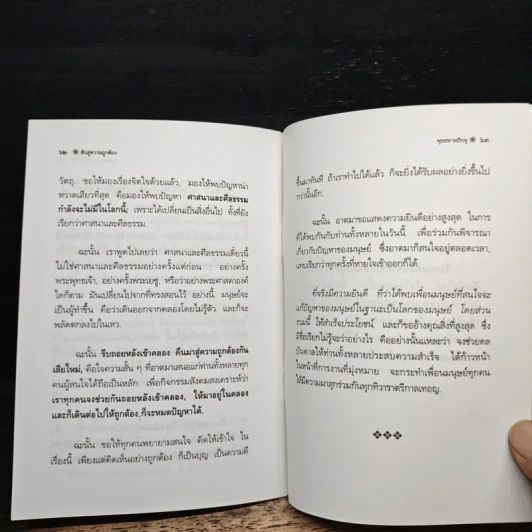 ๖๒ ❀ คืนสู่ความถูกต้อง
วัตถุ. ขอให้มองเรื่องจิตใจด้วยแล้ว, มองให้พบปัญหาน่า
หวาดเสียวที่สุด คือมองให้พบปัญหา ศาสนาและศีลธรรม
กำลังจะไม่มีในโลกนี้; เพราะได้เปลี่ยนเป็นสิ่งอื่นไป ทั้งที่ยัง
เรียกว่าศาสนาและศีลธรรม.
ฉะนั้น เราพูดไปเลยว่า ศาสนาและศีลธรรมเดี๋ยวนี้
ไม่ใช่ศาสนาและศีลธรรมอย่างครั้งแต่ก่อน อย่างครั้ง
พระพุทธเจ้า, อย่างครั้งพระเยซู, หรือว่าอย่างพระศาสดาองค์
ใดก็ตาม มันเปลี่ยนไปจากที่ทรงสอนไว้ อย่างนี้ มนุษย์จะ
เป็นผู้ทำขึ้น คือว่าเดินออกจากคลองโดยไม่รู้ตัว และก็จะ
พลัดตกลงไปในเหว.
ฉะนั้น รีบถอยหลังเข้าคลอง คืนมาสู่ความถูกต้องกัน
เสียใหม่, คือใจความสั้น ๆ ที่อาตมาเสนอแก่ท่านทั้งหลายทุก
คนผู้สนใจ ได้ถือเป็นหลัก เพื่อกิจกรรมสังคมสงเคราะห์ว่า
เราทุกคนจงช่วยกันถอยหลังเข้าคลอง, ให้มาอยู่ในคลอง
และก็เดินต่อไปให้ถูกต้อง ก็จะหมดปัญหาได้.
ฉะนั้น ขอให้ทุกคนพยายามสนใจ คิดให้เข้าใจ ใน
เรื่องนี้ เพียงแต่คิดเห็นอย่างถูกต้อง ก็เป็นบุญ เป็นความดี
พุทธทาสภิกขุ ❀ ๖๓
ขึ้นมาทันที ถ้าเราทำไปได้แล้ว ก็จะยิ่งได้รับผลอย่างยิ่งขึ้นไป
กว่านั้นอีก.
ฉะนั้น อาตมาขอแสดงความยินดีอย่างสูงสุด ในการ
ที่ได้พบกันกับท่านทั้งหลายในวันนี้ เพื่อร่วมกันพิจารณา
เกี่ยวกับปัญหาของมนุษย์ ซึ่งอาตมาก็สนใจอยู่ตลอดเวลา,
แทบเรียกว่าทุกครั้งที่หายใจเข้าออกก็ได้.
ที่จริงมีความยินดี ที่ว่าได้พบเพื่อนมนุษย์ที่สนใจจะ
แก้ปัญหาของมนุษย์ในฐานะเป็นโลกของมนุษย์ โดยส่วน
รวมนี้ ให้สำเร็จประโยชน์, และก็ขออ้างคุณสิ่งที่สูงสุด ซึ่ง
มีชื่อเรียกไม่รู้จะว่าอย่างไร คืออย่างนั้นแหละว่า จงช่วยดล
บันดาลให้ท่านทั้งหลายประสบความสำเร็จ ได้ก้าวหน้า
ในหน้าที่การงานที่มุ่งหมาย จะกระทำเพื่อนมนุษย์ทุกคน
ให้มีความผาสุกร่วมกันทุกทิวาราตรีกาลเทอญ.